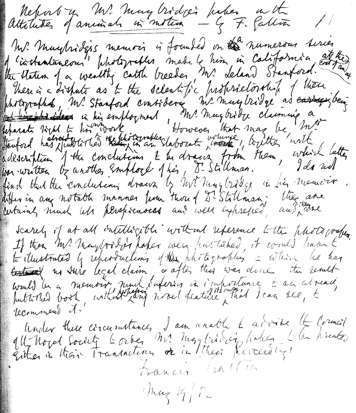 Report on Mr Muybridge's paper on the
Attitudes of animals in motion — by F. Galton
Mr Muybridge's memoir is founded on a numerous series
of "instantaneous" photographs made by him in California at the
the station of a wealthy cattle breeder, Mr Leland Stanford.
There is a dispute as to the scientific proprietorship of these
photographs, Mr Stanford considering Mr Muybridge as
in his employment Mr Muybridge claiming a
separate right to his work. However that may be, Mr
Stanford has published in an elaborate together with
a description of the conclusions to be drawn from them, which latter
was written by another employé of his, Dr Stillman. I do not
find that the conclusions drawn by Mr Muybridge in his memoir
differ in any notable manner from those of Dr Stillman; they are
certainly much less perspicuous and well expressed, and are
scarcely if at all intelligible without reference to the photographs.
If then Mr Muybridge's paper were published, it would want
to be illustrated by reproductions of the photographs to which he has
no sure legal claim, & after this was done the result
would be a memoir, much inferior in importance to an already
published book without any novel feature, that I can see, to
recommend it.
Under these circumstances I am unable to advise the Council
of the Royal Society to order Mr Muybridge's paper to be printed
either in their Transactions or in their Proceedings.
Francis Galton
May 9/82